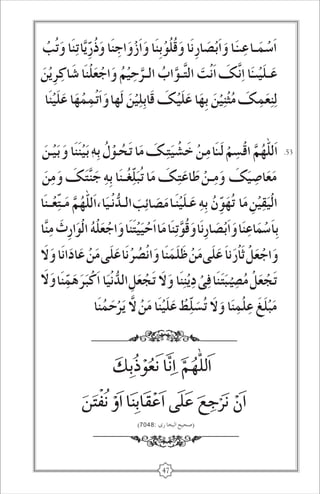 اَسْمَـاعِـنَا وَ اَبْصَارِنَا وَقُلُوْبِنَا وَاَزْوَاجِنَا وَذُرِّيَّاتِنَا وَتُبْ
عَلَـيْـنَـا اِنَّكَ اَنْتَ التَّـوَّابُ الـرَّحِيْمُ وَاجْعَلْنَا شَاكِرِيْنَ
لِنِعَمِكَ مُثْنِيْنَ بِهَا عَلَيْكَ قَابِلِيْنَ لَهَا وَاَتْمِمْهَا عَلَيْنَا
53. اَللّٰهُمَّ اقْسِمْ لَنَا مِنْ خَشْيَتِكَ مَا تَحُوْلُ بِهِ بَيْنَنَا وَ بَيْـنَ
مَعَاصِيْكَ وَمِـنْ طَاعَتِكَ مَا تُبَلِّغُـنَا بِهِ جَنَّتَكَ وَمِنَ
الْيَقِيْنِ مَا تُهَوِّنُ بِهِ عَلَيْـنَا مَصَائِبَ الـدُّنْيَا، اَللّٰهُمَّ مَـتِّعْـنَا
بِاَسْمَاعِنَا وَاَبْصَارِنَا وَقُوَّتِنَا مَا اَحْيَيْتَنَا وَاجْعَلْهُ الْوَارِثَ مِنَّا
وَاجْعَلْ ثَأْرَنَا عَلَى مَنْ ظَلَمَنَا وَانْصُرْنَا عَلَى مَنْ عَادَانَا وَلَا
تَجْعَلْ مُصِيْبَتَنَا فِي دِيْنِنَا وَلَا تَجْعَلِ الدُّنْيَا اَكْبَرَ هَمِّنَا وَلَا
مَبْلَغَ عِلْمِنَا وَلَا تُسَلِّطْ عَلَيْنَا مَنْ لَّا يَرْحَمُنَا
اَللّٰهُمَّ اِنَّا نَعُوْذُبِكَ
اَنْ نَرْجِعَ عَلَى اَعْقَابِنَا اَوْ نُفْتَنَ
(صحیح البخاری :7048)
47